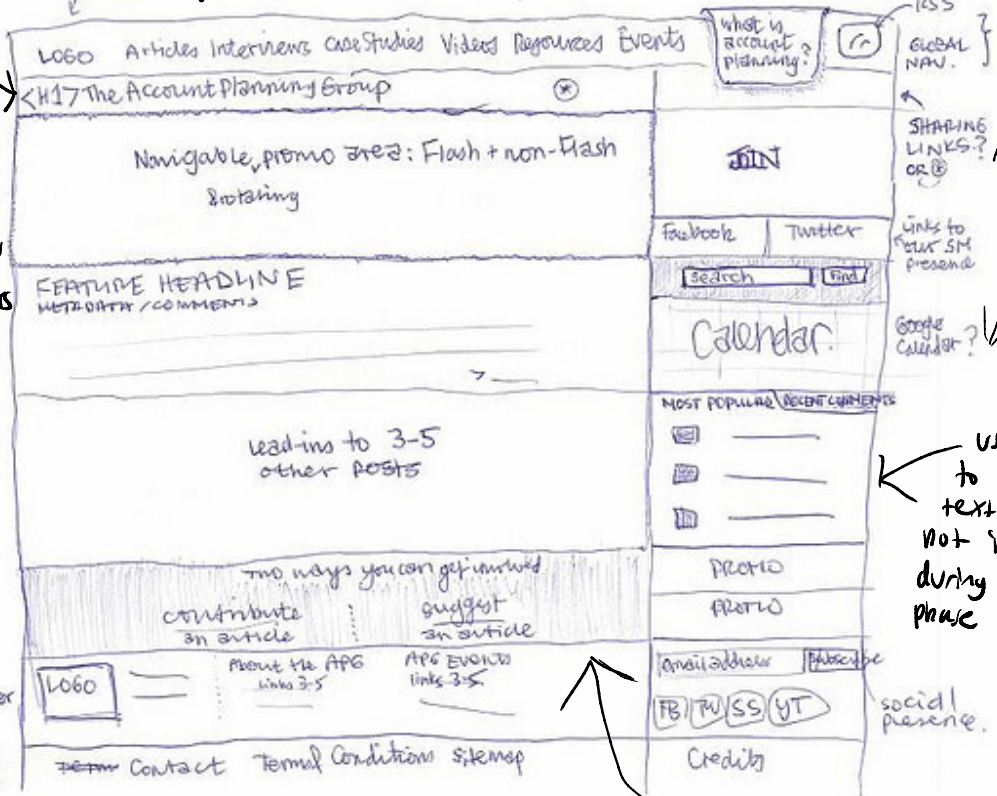 RSS
LOGO Articles Interviews Case Studies Videos Resources Events
what is
account
planning?
GLOBAL
NAV.
<H1> The Account Planning Group
SHARING
LINKS?
OR
JOIN
Navigable, promo area: Flash + non-Flash
& rotating
Facebook Twitter
Links to
our SM
presence
Search Find
FEATURE HEADLINE
METADATA / COMMENTS
Calendar
Google
Calendar?
MOST POPULAR RECENT COMMENTS
lead-ins to 3-5
other posts
to
text
not
during
phase
Two ways you can get involved
contribute
an article
suggest
an article
PROMO
PROMO
LOGO
About the APG
links 3-5
APG EVENTS
links 3-5
email address Subscribe
FB TW SS YT
social
presence.
Contact Terms Conditions Sitemap
Credits